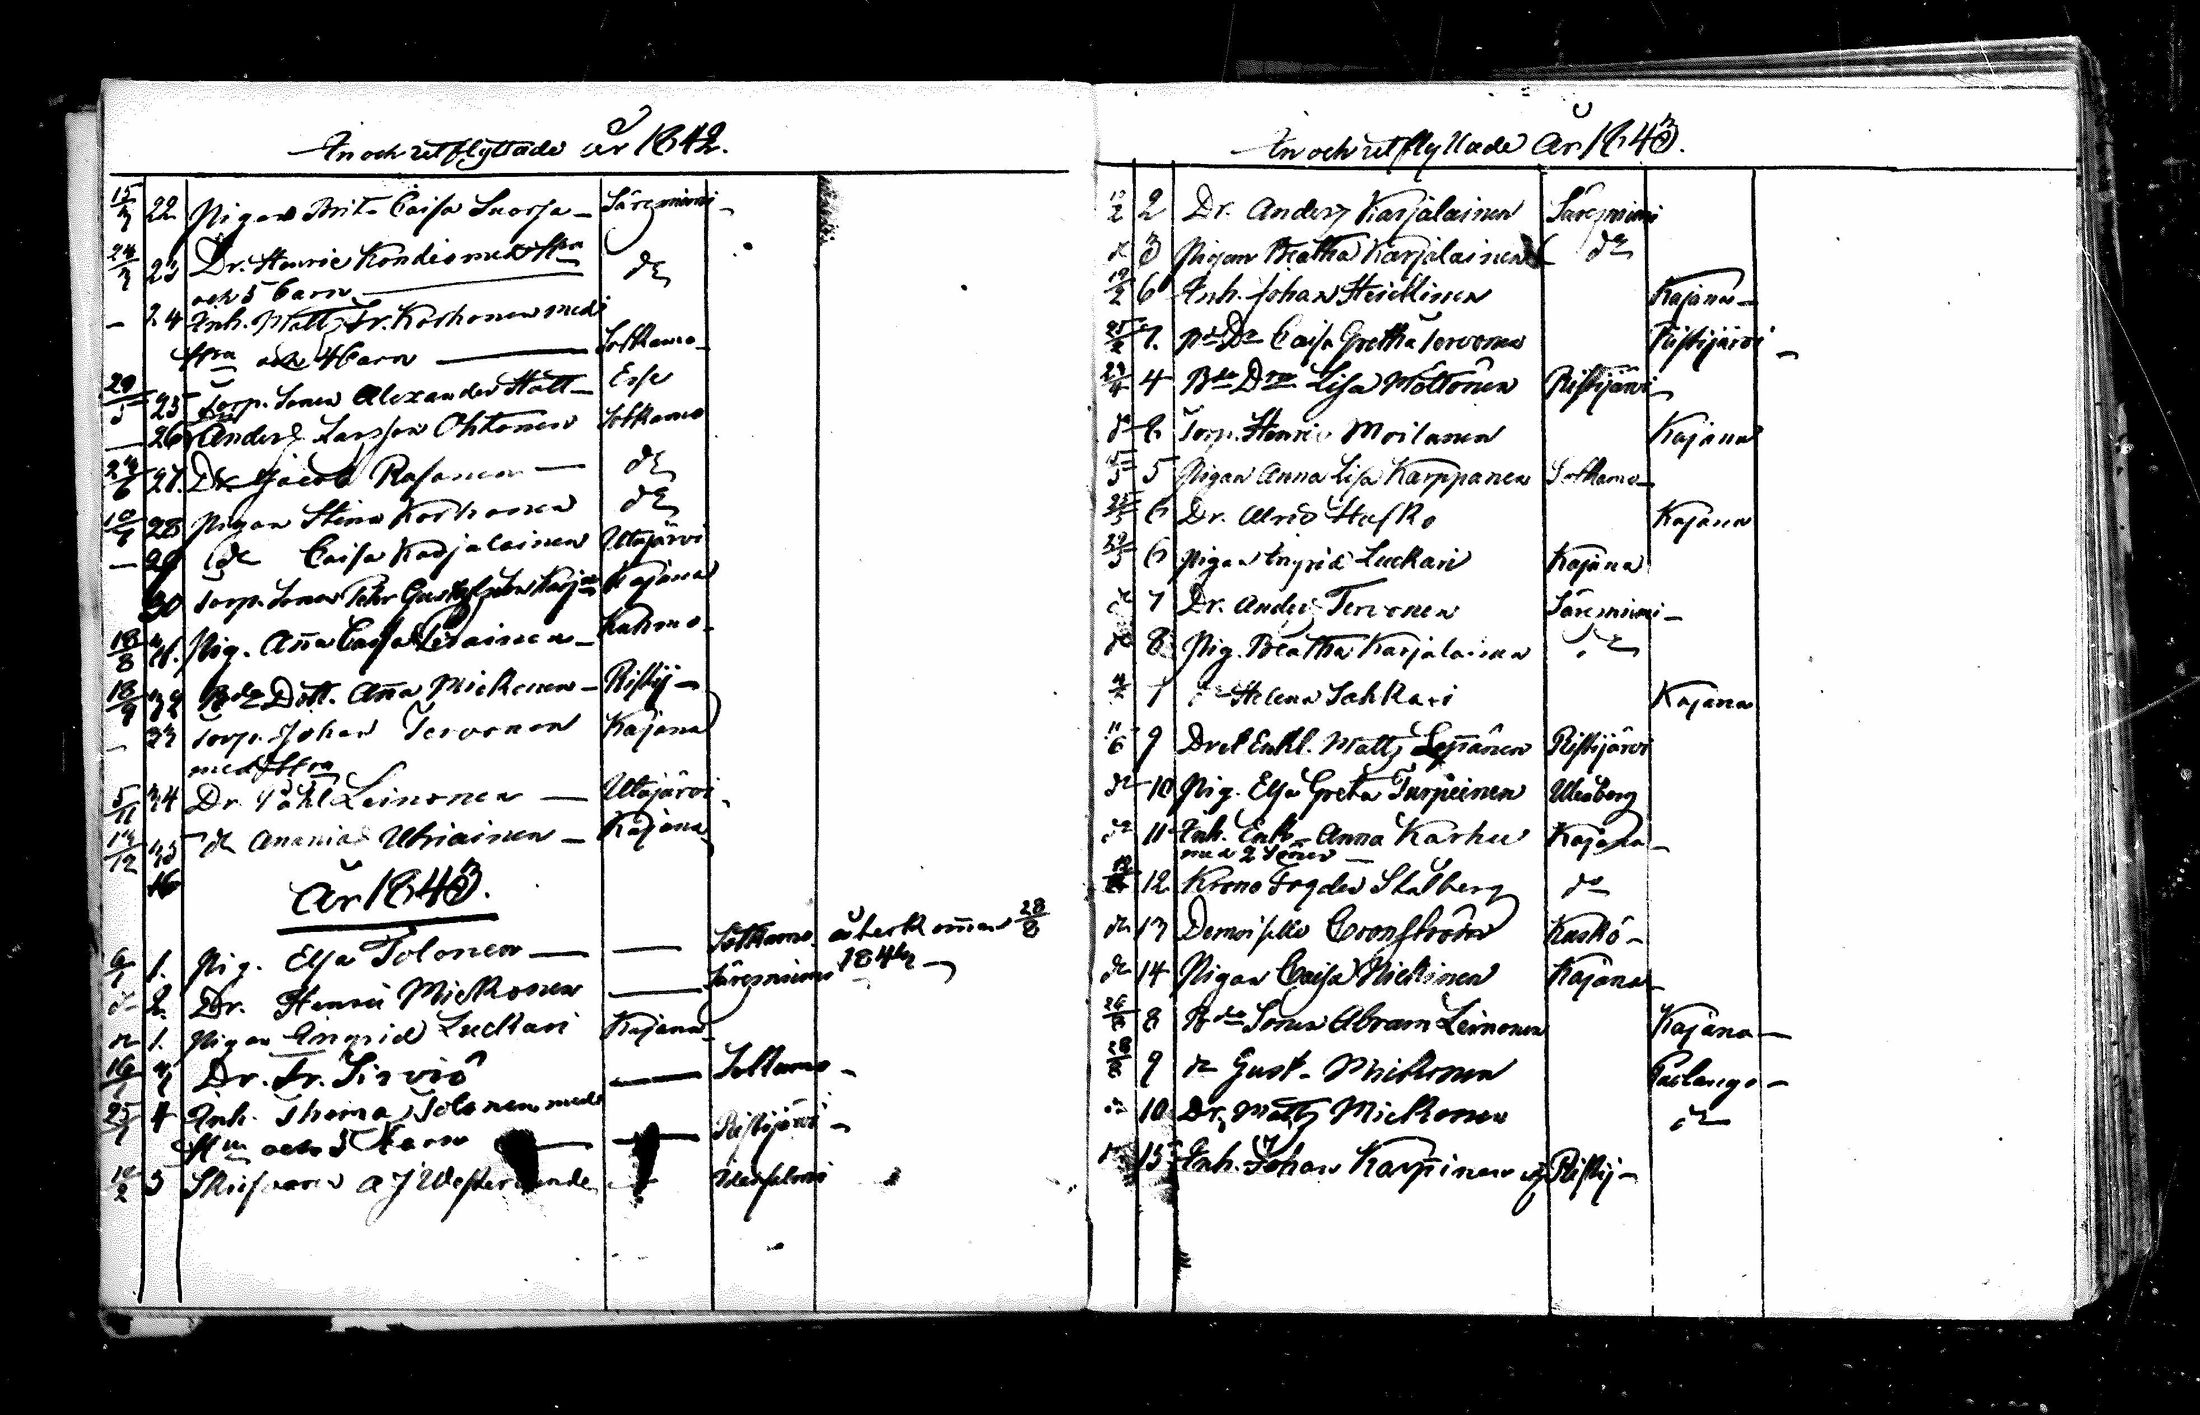 In och utflyttade år 1842.
15/3 22 Pigan Brita Caisa Suorsa - Säresniemi -
24/3 23 Dr. Henric Kondio med Hru d:o
och 5 barn
- 24 Inh. Matts Fr. Korhonen med
Hru och 4 barn Sotkamo -
29/5 25 Torp. Sonen Alexander Hätt - Esse
- 26 Anders Larsson Ohtonen Sotkamo
24/6 27. Dr. Jacob Rasanen - d:o
10/7 28 Pigan Stina Korhonen d:o
- 29 d:o Caisa Karjalainen Utajärvi
30 Torp. Sonen Petr Gustafsson Kajana
18/8 Pig. Aña Caisa Kuhmo -
18/9 32 B:de Dott. Aña Mickonen - Ristij -
- 33 Torp. Johan Tervonen Kajana
med Hru
5/11 34 Dr. Påhl Leinonen - Utajärvi -
12 35 d:o Ananias Uhriainen - Kajana
År 1843.
6/1 1. Pig. Elsa Tolonen - Sotkamo återkommen 28/8
184
d:o 2. Dr. Henric Mickonen Säresniemi
d:o 1. Pigan Ingrid Luckari Kajana
16/1 3 Dr. Fr. Sirviö Sotkamo -
25/1 4 Inh. Thoma Tolonen med
Hru och 5 barn Ristijärvi -
12/2 5 Skrifvaren A J Westerlunde Idensalmi
In och utflyttade År 1843.
12/2 2 Dr. Anders Karjalainen Säresniemi
d:o 3 Pigan Beatha Karjalainen d:o
19/2 6 Inh. Johan Heickinen Kajana -
25/2 7. B:de D:r Caisa Gretha Tervonen Ristijärvi -
4 B:de D:r Lisa Möttönen Ristijärvi -
d:o Torp. Henric Moilanen Kajana
15/5 5 Pigan Anna Lisa Karppanen Sotkamo -
25/5 6 Dr. Alrid Husko Kajana
29/5 6 Pigan Ingrid Luckari Kajana
d:o 7 Dr. Anders Tervonen Säresniemi -
d:o 8 Pig. Beatha Karjalainen d:o
7 d:o Helena Sahkari Kajana
11/6 9 Dr. Matts Leppänen Ristijärvi
d:o 10 Pig. Elsa Greta Turpeinen Uleåborg
d:o 11 Inh. Enk. Anna Karhu Kajana -
med 2 Söner -
12 Krono Fogden Stålberg d:o
d:o 13 Demoiselle Cronström Kaskö -
d:o 14 Pigan Caisa Kajana -
26/8 8 B:de Sonen Abram Leinonen Kajana -
28/8 9 d:o Gust. Mickonen Paldamo -
d:o 10 Dr. Matts Mickonen d:o
15 Inh. Johan Karppinen Ristij -